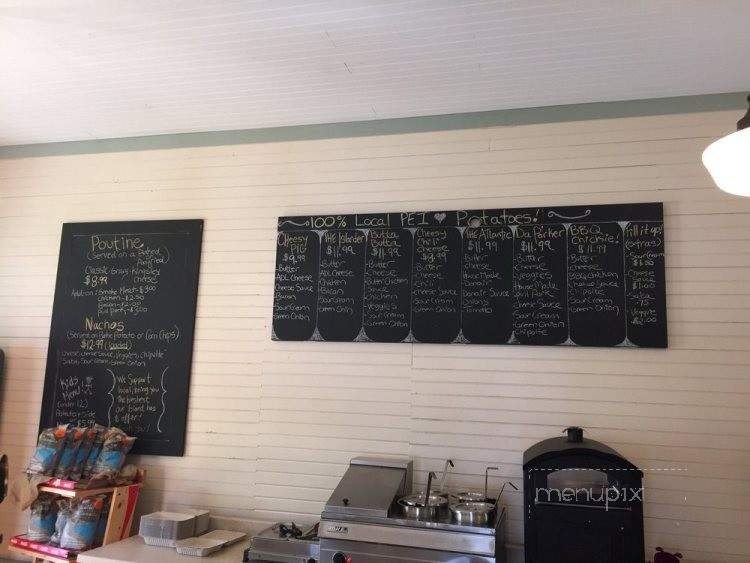 Poutine
(Served on a Baked
or Pan Fried)
Classic Gravy Kingsley
$8.99 cheese
Addition: Smoke Meat - $3.00
Chicken - $2.50
Bacon - $2.00
Pull Pork - $3.00
Nachos
(Served on Potato or Corn Chips)
$12.99 (Loaded)
Cheese, Cheese Sauce, Veggies, Chipotle
Salsa, Sour Cream, Green Onion
Kids
Menu
(under 12)
Potato + Side
$5.99
We Support
local, bring you
the freshest
our Island has
to offer!
100% Local PEI Potatoes!
Cheesy
PIG
$9.99
Butter
ADL Cheese
Cheese Sauce
Bacon
Sour Cream
Green Onion
THE Islander
$11.99
Butter
ADL Cheese
Chicken
Bacon
Sour Cream
Green Onion
Butta
Butta
$11.99
Butter
Cheese
Butter Chicken
Chicken
Veggies
Sour Cream
Green Onion
Cheesy
Chili
Cheese
$9.99
Butter
Cheese
Chili
Cheese Sauce
Sour Cream
Green Onion
THE Atlantic
$11.99
Butter
Cheese
House Made
Donair
Donair Sauce
Onions
Tomato
Da Porker
$11.99
Butter
Cheese
Veggies
House Made
Pull Pork
Cheese Sauce
Sour Cream
Green Onion
Chipotle
BBQ
Chickie!
$11.99
Butter
Cheese
BBQ Chicken
Cheese Sauce
Chipotle
Sour Cream
Green Onion
Fill it up!
(extras)
Sour Cream
$1.50
Cheese
Sauce
$1.00
Salsa
.75
Veggie
$2.00
menupix